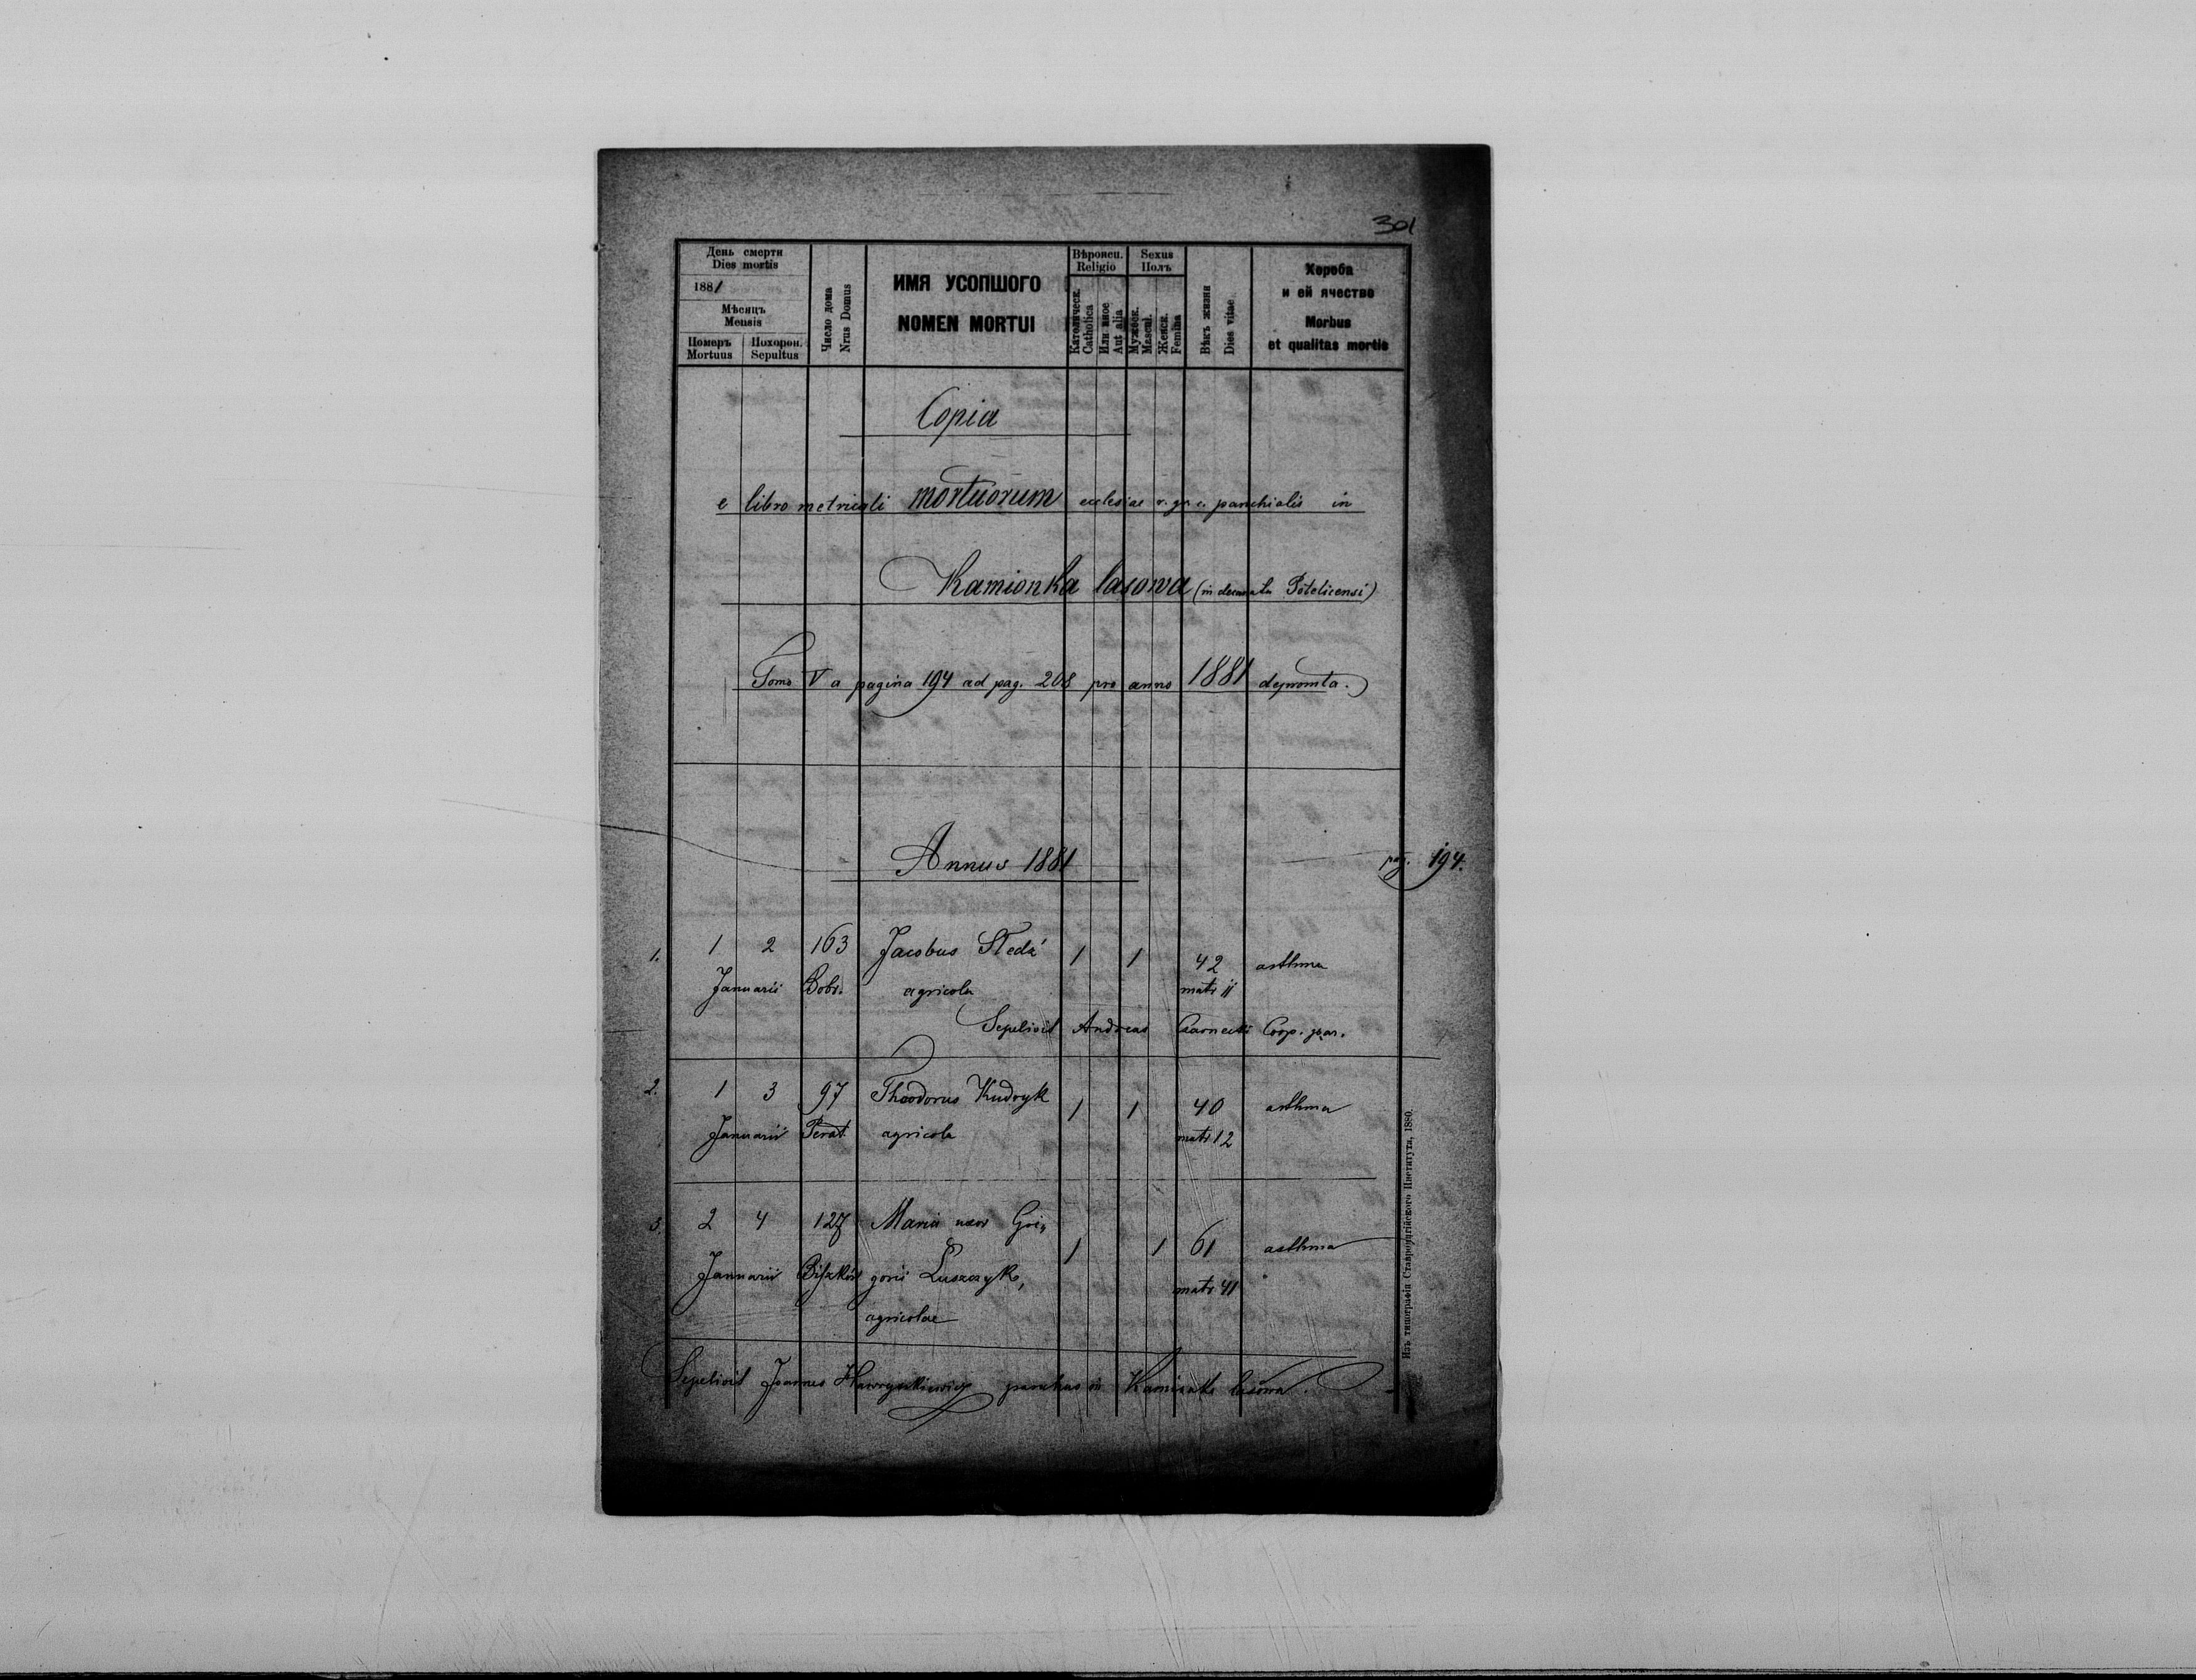 301
День смерти
Dies mortis
1881
Мѣсяцъ
Mensis
Померъ Похорон.
Mortuus Sepultus
Число дома
Nrus Domus
ИМЯ УСОПШОГО
NOMEN MORTUI
Вѣроисп.
Religio
Католическ.
Catholica
Или иное
Aut alia
Sexus
Полъ
Мужеск.
Mascul.
Женск.
Femina
Вѣкъ жизни
Dies vitae
Хороба
и ей ячество
Morbus
et qualitas mortis
Copia
e libro metricali mortuorum ecclesiae r. gr. c. parochialis in
Kamionka lasowa (in decanatu Potelicensi)
Tomo V a pagina 194 ad pag. 208 pro anno 1881 depromta.
Annus 1881
pag. 194.
1. 1 2 163 Jacobus 1 1 42 asthma
Januarii Bobr. agricola matr 11
Sepelivit Andreas Czarnecki Coop. par.
2. 1 3 97 Theodorus Kudryk 1 1 40 asthma
Januarii Perat agricola matr 12
3. 2 4 127 Maria uxor Gre, 1 1 61 asthma
Januarii gorii Łuszczyk, matr 41
agricolae
Sepelivit Joannes parochus in Kamionka lasowa.
Изъ типографіи Ставропигійского Института, 1880.